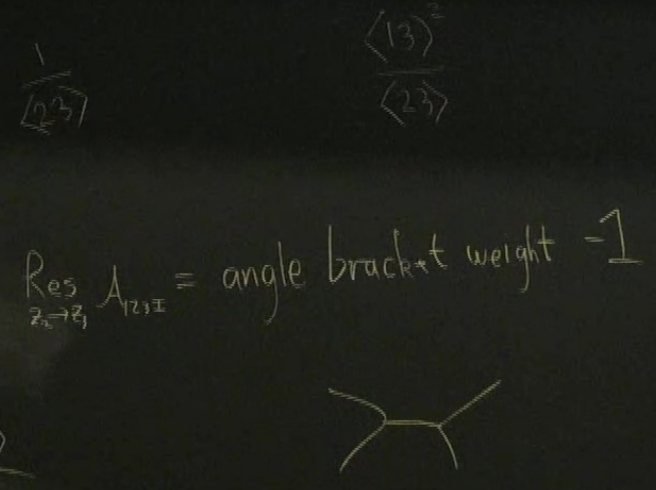 1/⟨23⟩ ⟨13⟩²/⟨23⟩
Res_{z₂→z₃} A_{123I} = angle bracket weight -1